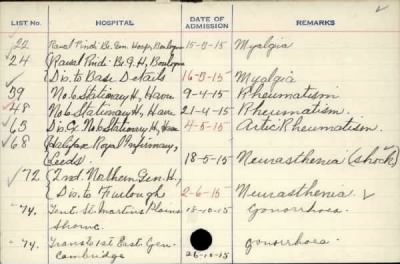 LIST No. HOSPITAL DATE OF ADMISSION REMARKS
22 Rawal Pindi Br. Gen. Hosp, Boulogne 15-8-15 Myalgia
24 Rawal Pindi Br. G. H, Boulogne
Dis. to Base Details 16-8-15 Myalgia
39 No. 6 Stationary H, Havre 9-4-15 Rheumatism
48 No. 6 Stationary H, Havre 21-4-15 Rheumatism.
65 Dis. G. No 6 Stationary H, Havre 4-5-15 Artic Rheumatism.
68 Halifax Royal Infirmary,
Leeds. 18-5-15 Neurasthenia (shock)
72 2nd. Nothern Gen. H,
Dis. to Furlough 2-6-15 Neurasthenia
74. Tent. St. Martins Plains 18-10-15 Gonorrhoea
Shornc.
74. Trans to 1st East. Gen. gonorrhoea.
Cambridge 26-10-15